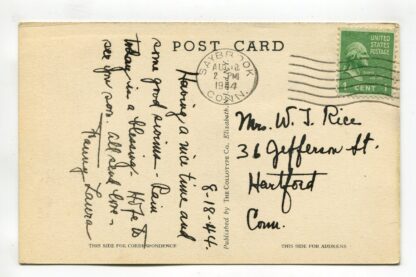 POST CARD
SAYBROOK
AUG 18
2 PM
1944
CONN.
UNITED
STATES
POSTAGE
1 CENT 1
8-18-44.
Having a nice time and
some good swims - Rain
today is a blessing. Hope to
see you soon - all send love -
Laura
Published by The Collotype Co., Elizabeth,
Mrs. W. T. Rice
36 Jefferson St.
Hartford
Conn.
THIS SIDE FOR CORRESPONDENCE
THIS SIDE FOR ADDRESS